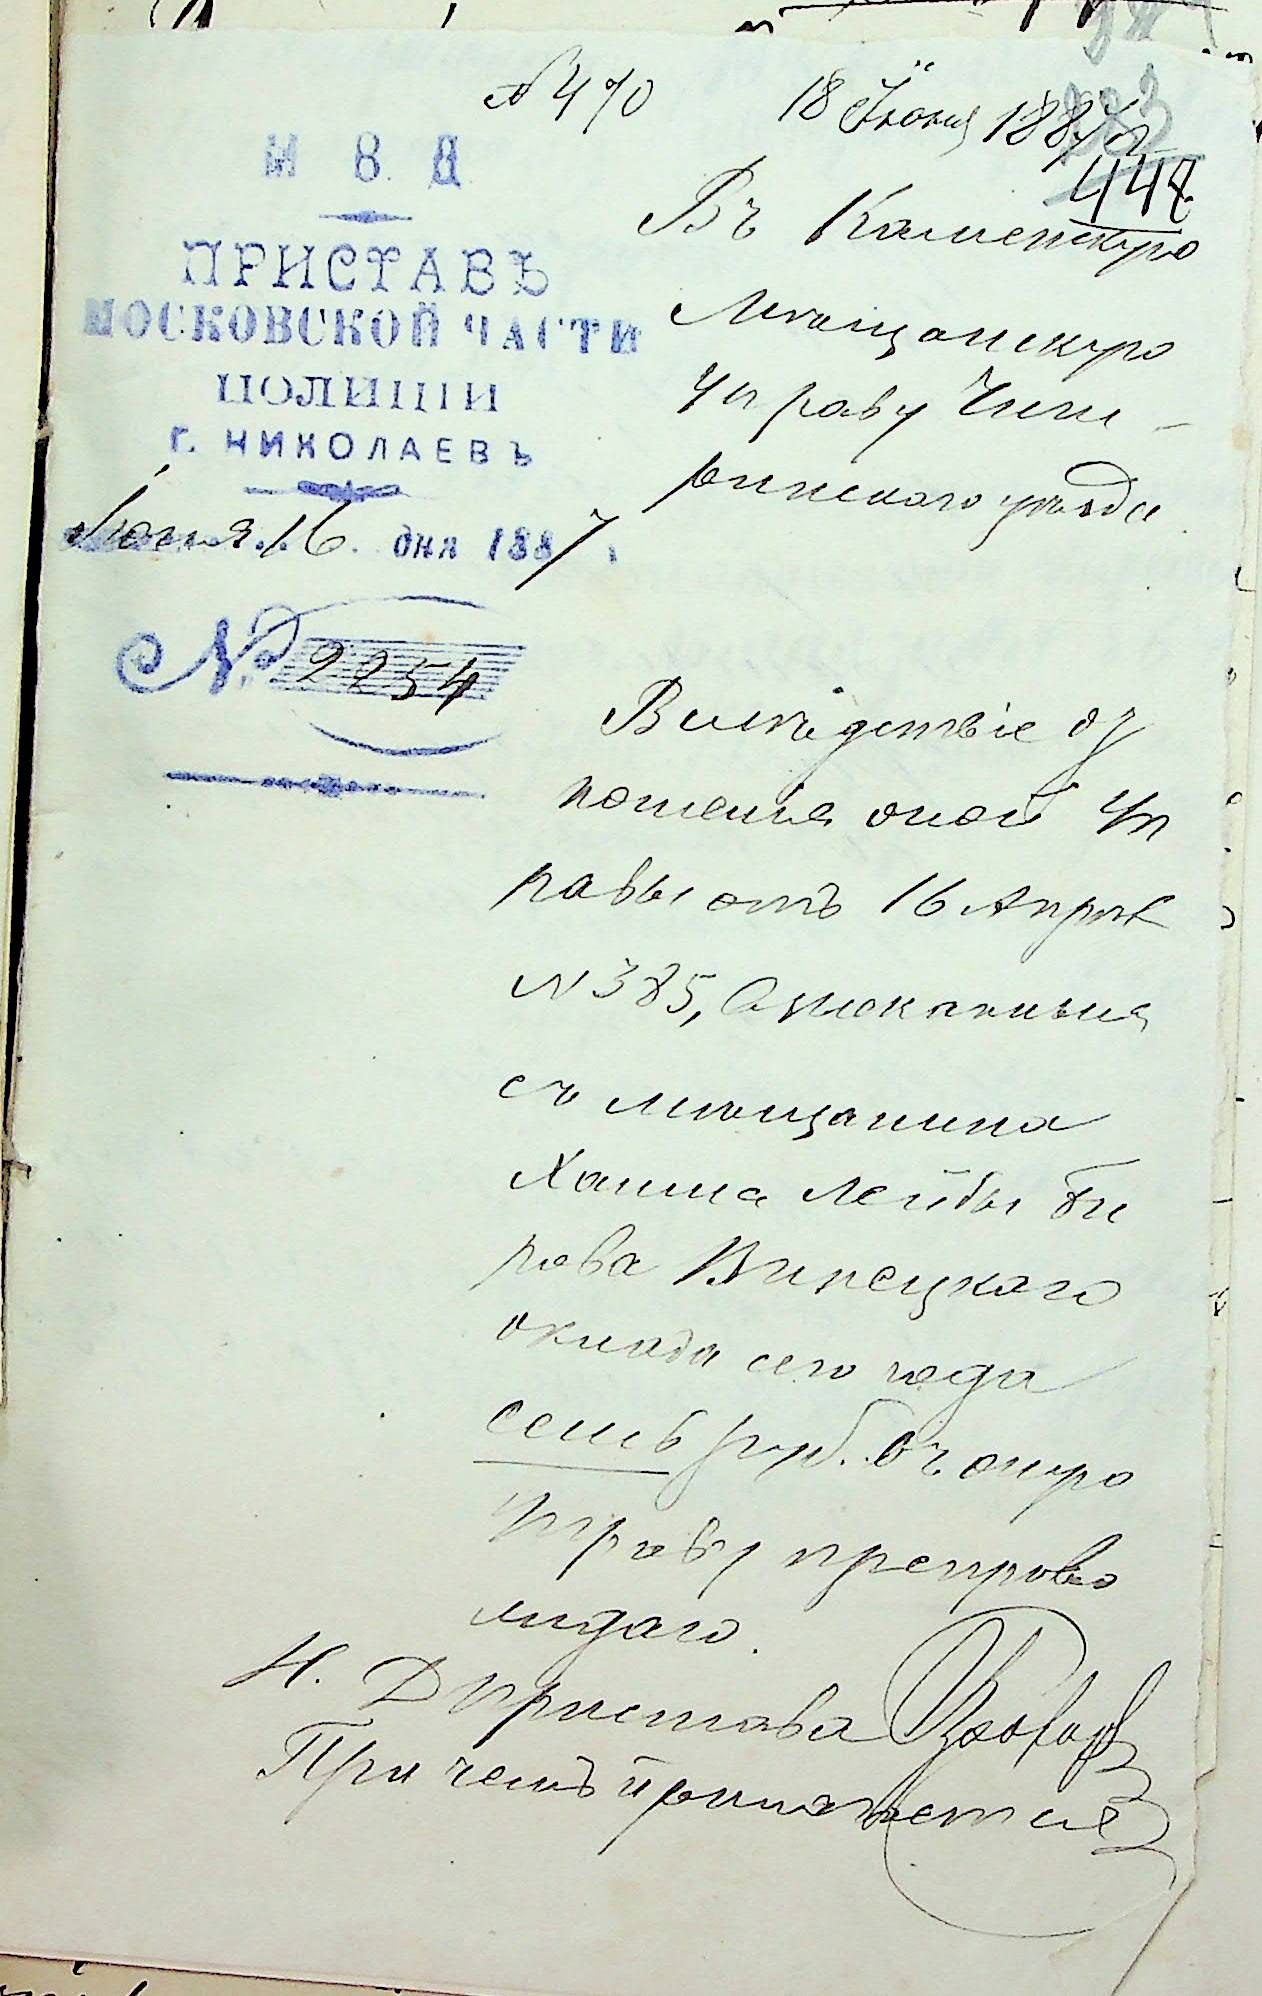 № 470 18 Июня 1887 г.
447
М В Д
ПРИСТАВЪ
МОСКОВСКОЙ ЧАСТИ
ПОЛИЦІИ
г. НИКОЛАЕВЪ
Іюня 16 дня 1887 г.
№ 2254
Въ Каменскую
Мѣщанскую
Управу Чиги-
ринского уѣзда
Вслѣдствіе от
ношенія оной Уп
равы отъ 16 Апрѣл
№ 385, взысканныя
съ мѣщанина
Хаима Лейбы Би
рова Винецкаго
оклада сего года
семь руб. въ оную
Управу препрово
ждаю.
И. Д Пристава
При чемъ прилагается